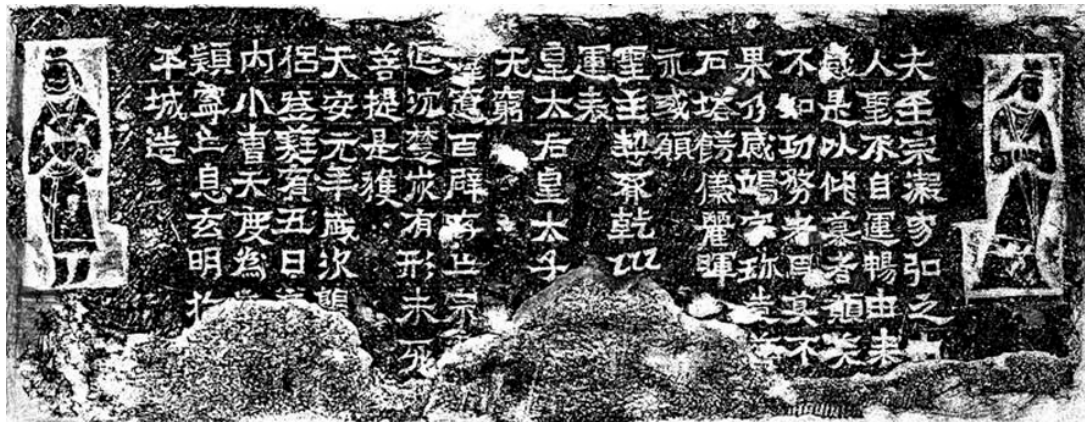 夫至宗凝寂弘之由
人聖不自運暢由表
感是以仰慕者悕光
不知功務者莫不
果乃感竭家珍造
石塔餝儀麗暉
永或願
聖主契齊乾巛
運表
皇太后皇太子
无窮
遼百辟存亡宗
延沉楚炭有形未亡
菩提是獲
天安元年歲次
侶登蕤賓五日
内小曹天度為
頴寧亡息玄明於
平城造